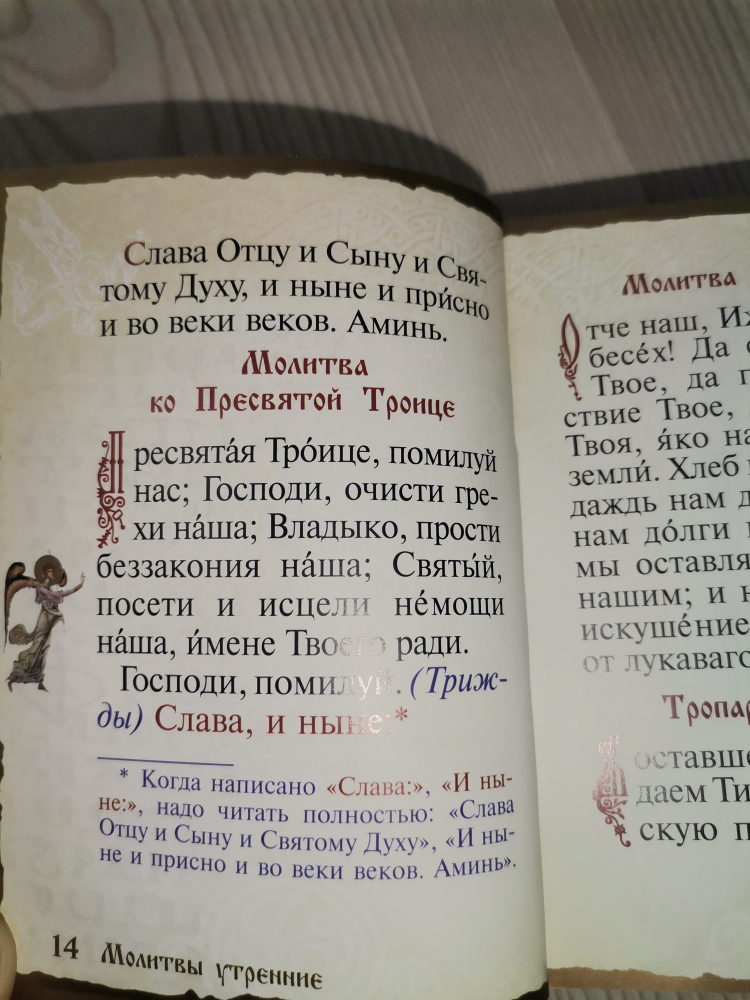 Слава Отцу и Сыну и Свя-
тому Духу, и ныне и при́сно
и во веки веков. Аминь.
Молитва
ко Пресвятой Троице
Пресвята́я Тро́ице, помилуй
нас; Господи, очисти гре-
хи на́ша; Владыко, прости
беззакония на́ша; Святы́й,
посети и исцели не́мощи
на́ша, и́мене Твоего ради.
Господи, помилуй. (Триж-
ды) Слава, и ныне:*
* Когда написано «Слава:», «И ны-
не:», надо читать полностью: «Слава
Отцу и Сыну и Святому Духу», «И ны-
не и присно и во веки веков. Аминь».
14 Молитвы утренние
Молитва
Отче наш, Иж
бесе́х! Да
Твое, да п
ствие Твое,
Твоя, я́ко на
земли́. Хлеб
даждь нам д
нам до́лги
мы оставля
нашим; и н
искуше́ние
от лукаваго
Тропар
оставше
даем Ти
скую п